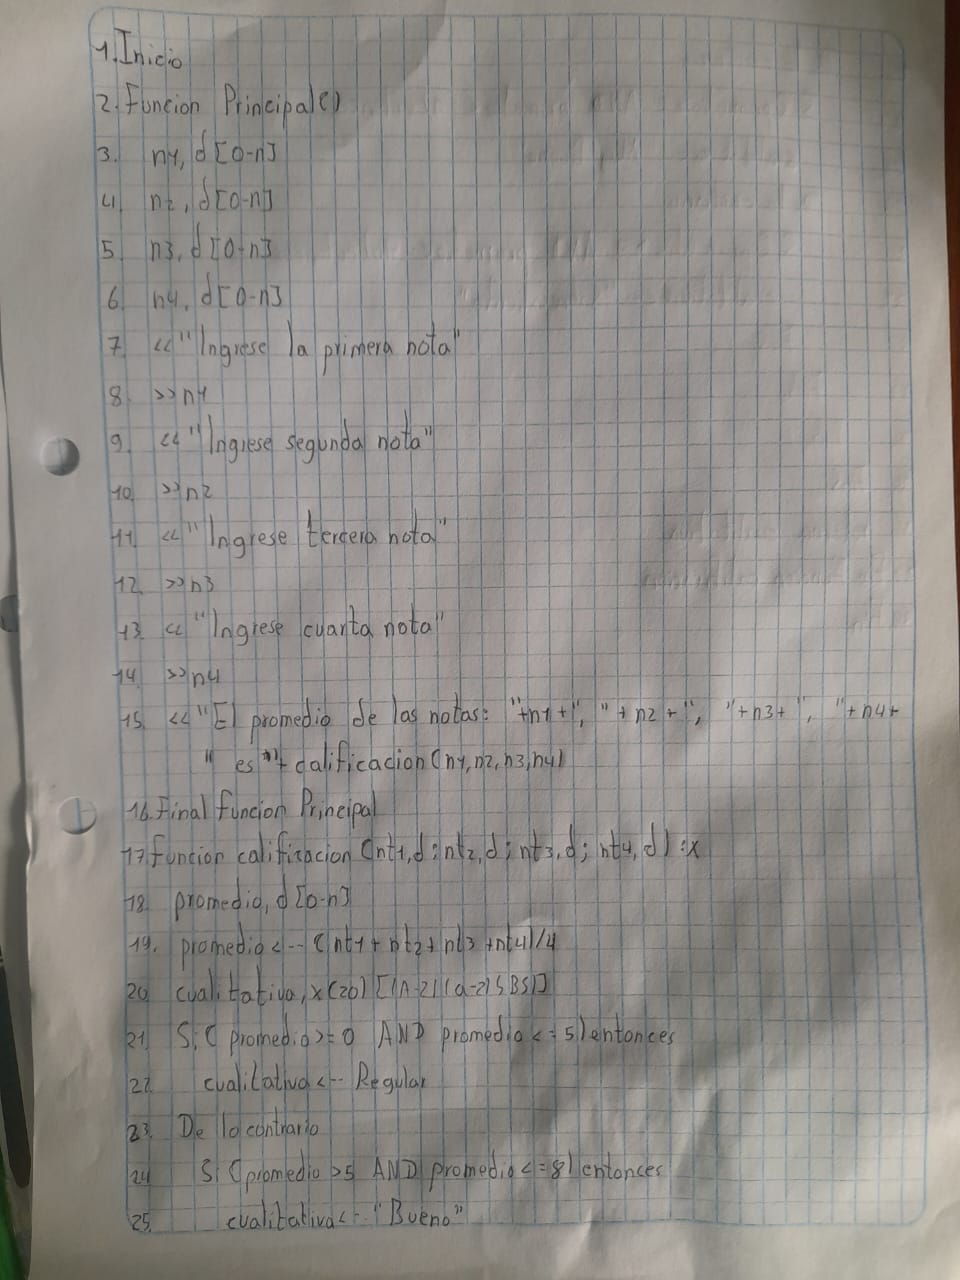 1. Inicio
2. Funcion Principal()
3. n1, d [0-n]
4. n2, d [0-n]
5. n3, d [0-n]
6. n4, d [0-n]
7. << "Ingrese la primera nota"
8. >> n1
9. << "Ingrese segunda nota"
10. >> n2
11. << "Ingrese tercera nota"
12. >> n3
13. << "Ingrese cuarta nota"
14. >> n4
15. << "El promedio de las notas: "+n1+", "+n2+", "+n3+", "+n4+
" es "+ calificacion (n1,n2,n3,n4)
16. Final funcion Principal
17. Funcion calificacion (nt1,d; nt2,d; nt3,d; nt4,d) :x
18. promedio, d [0-n]
19. promedio <-- (nt1 + nt2 + nt3 + nt4)/4
20. cualitativa, x(20) [(A-Z)(a-z)SBS)]
21. Si( promedio >= 0 AND promedio <= 5) entonces
22. cualitativa <-- Regular
23. De lo contrario
24. Si (promedio > 5 AND promedio <= 8) entonces
25. cualitativa <-- "Bueno"